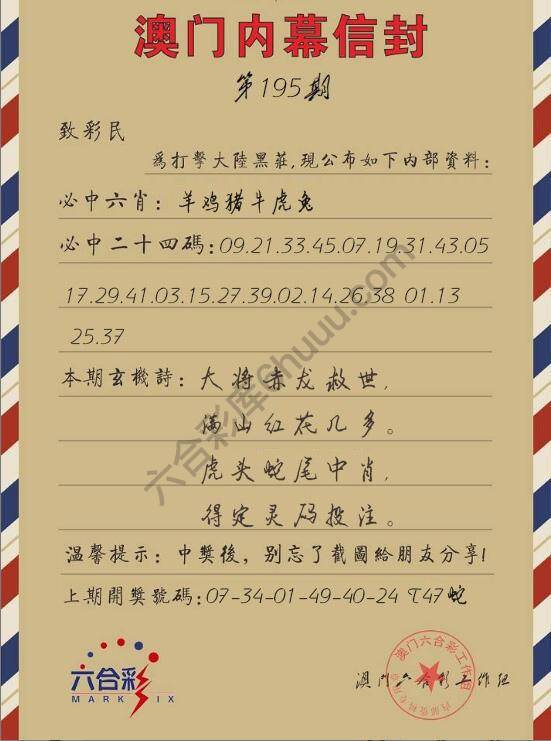 澳门内幕信封
第195期
致彩民
爲打擊大陸黑莊,現公布如下内部資料:
必中六肖: 羊鸡猪牛虎兔
必中二十四碼:09.21.33.45.07.19.31.43.05
17.29.41.03.15.27.39.02.14.26.38 01.13
25.37
本期玄機詩: 大将赤龙救世,
满山红花几多。
虎头蛇尾中肖,
得定灵码投注。
温馨提示: 中獎後, 别忘了截圖給朋友分享!
上期開獎號碼:07-34-01-49-40-24 T47蛇
六合彩
MARK SIX
澳门六合彩工作组
澳门六合彩工作组
六合彩库6huuu.com